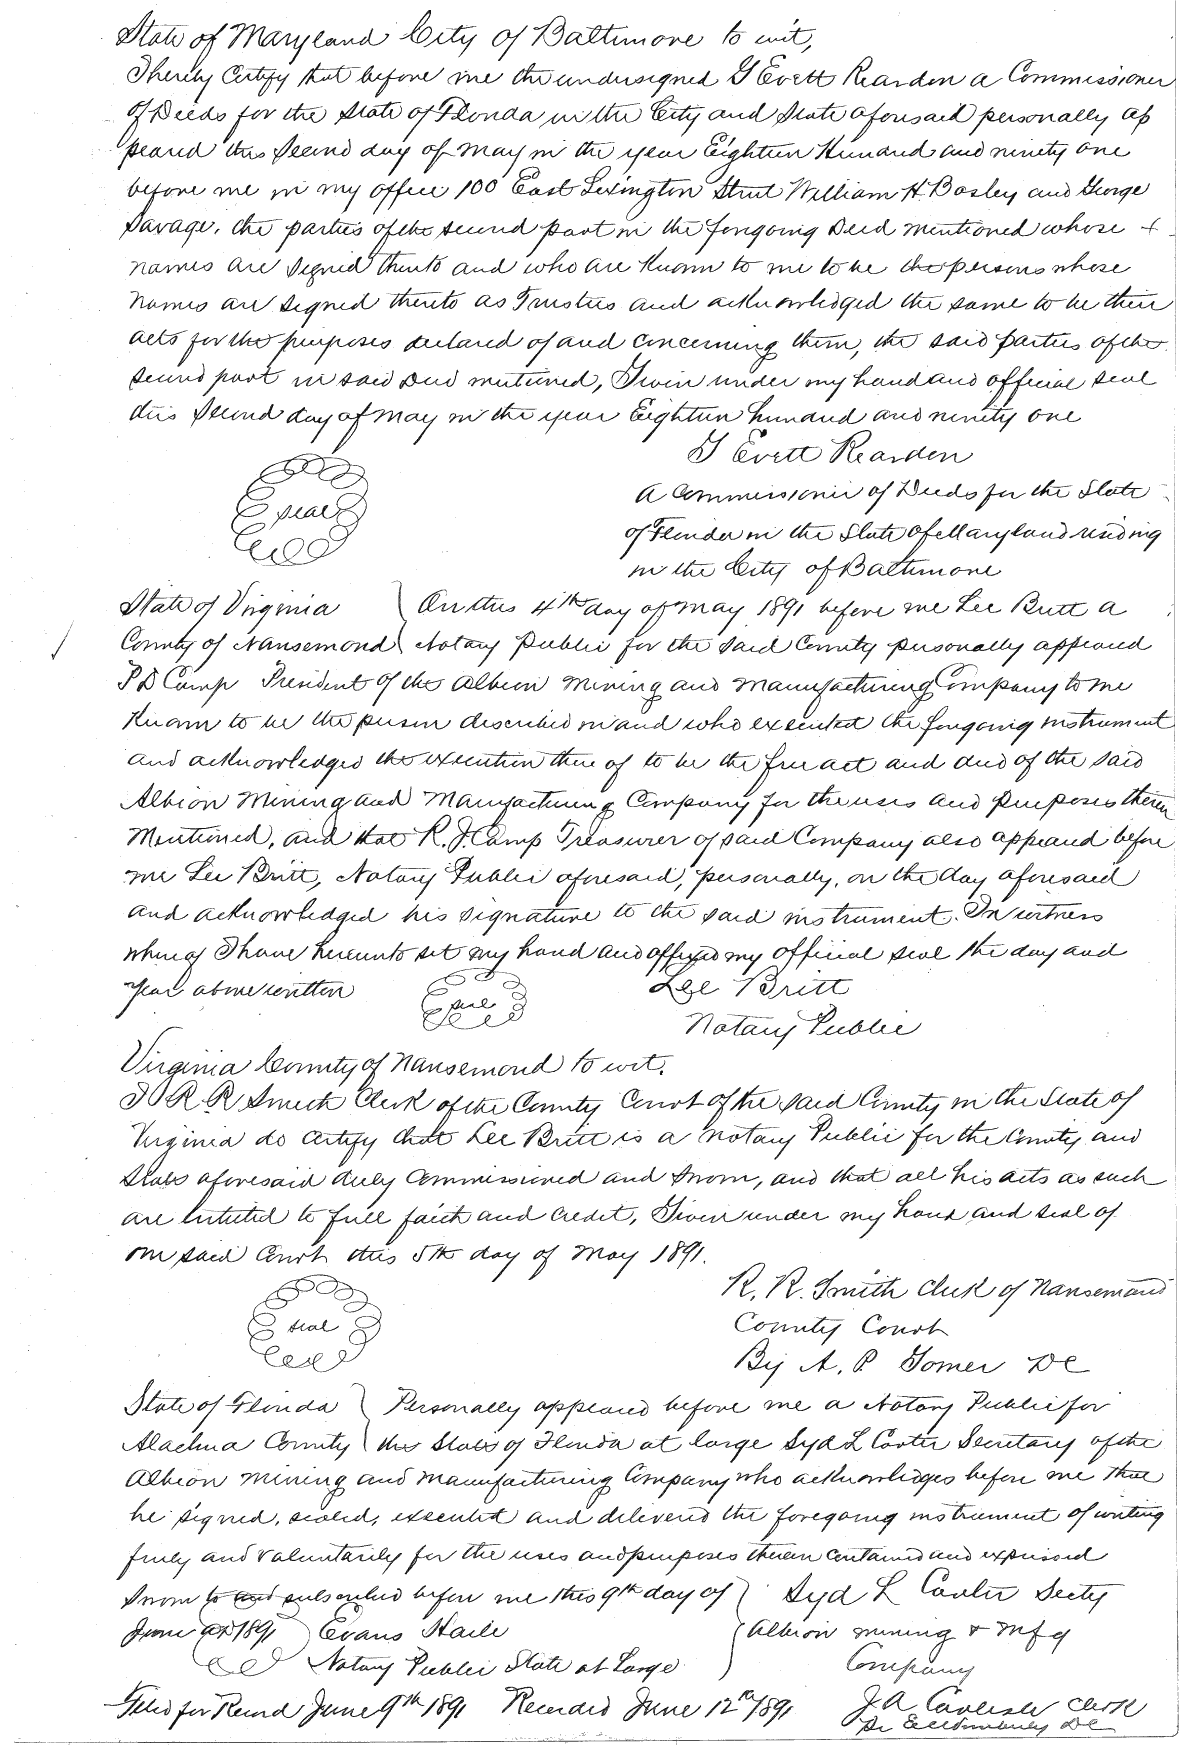 State of Maryland City of Baltimore to wit,
I hereby Certify that before me the undersigned G Evett Reardon a Commissioner
of Deeds for the State of Florida in the City and State aforesaid personally ap
peared this Second day of May in the year Eighteen Hundred and ninety one
before me in my office 100 East Lexington Street William H. Bosley and George
Savage, the parties of the second part in the foregoing Deed mentioned whose
names are signed thereto and who are Known to me to be the persons whose
names are signed thereto as Trustees and acknowledged the same to be their
acts for the purposes declared of and concerning them, the said parties of the
second part in said Deed mentioned, Given under my hand and official seal
this Second day of May in the year Eighteen hundred and ninety one
G Evett Reardon
A Commissioner of Deeds for the State
seal
of Florida in the State of Maryland residing
in the City of Baltimore
State of Virginia On this 4th day of May 1891 before me Lee Britt a
County of Nansemond Notary Public for the said County personally appeared
P D Camp President of the Albion Mining and Manufacturing Company to me
Known to be the person described in and who executed the foregoing instrument
and acknowledged the execution there of to be the free act and deed of the said
Albion Mining and Manufacturing Company for the uses and purposes therein
Mentioned, and that R. J. Camp Treasurer of said Company also appeared before
me Lee Britt, Notary Public aforesaid, personally, on the day aforesaid
and acknowledged his signature to the said instrument. In witness
whereof I have hereunto set my hand and affixed my official seal the day and
year above written seal Lee Britt
Notary Public
Virginia County of Nansemond to wit.
I R R Smith Clerk of the County Court of the said County in the State of
Virginia do certify that Lee Britt is a Notary Public for the County and
State aforesaid duly Commissioned and Sworn, and that all his acts as such
are entitled to full faith and credit, Given under my hand and seal of
our said Court this 5th day of May 1891.
R. R. Smith Clerk of Nansemond
seal County Court
By A. P. Gomer DC
State of Florida Personally appeared before me a Notary Public for
Alachua County the State of Florida at large Syd L Carter Secretary of the
Albion Mining and Manufacturing Company who acknowledges before me that
he signed, sealed, executed and delivered the foregoing instrument of writing
freely and voluntarily for the uses and purposes therein contained and expressed
Sworn to and subscribed before me this 9th day of Syd L Carter Secty
June AD 1891 Evans Haile Albion Mining & Mfg
Notary Public State at Large Company
Filed for Record June 9th 1891 Recorded June 12th 1891 J. A. Carlisle Clerk
DC